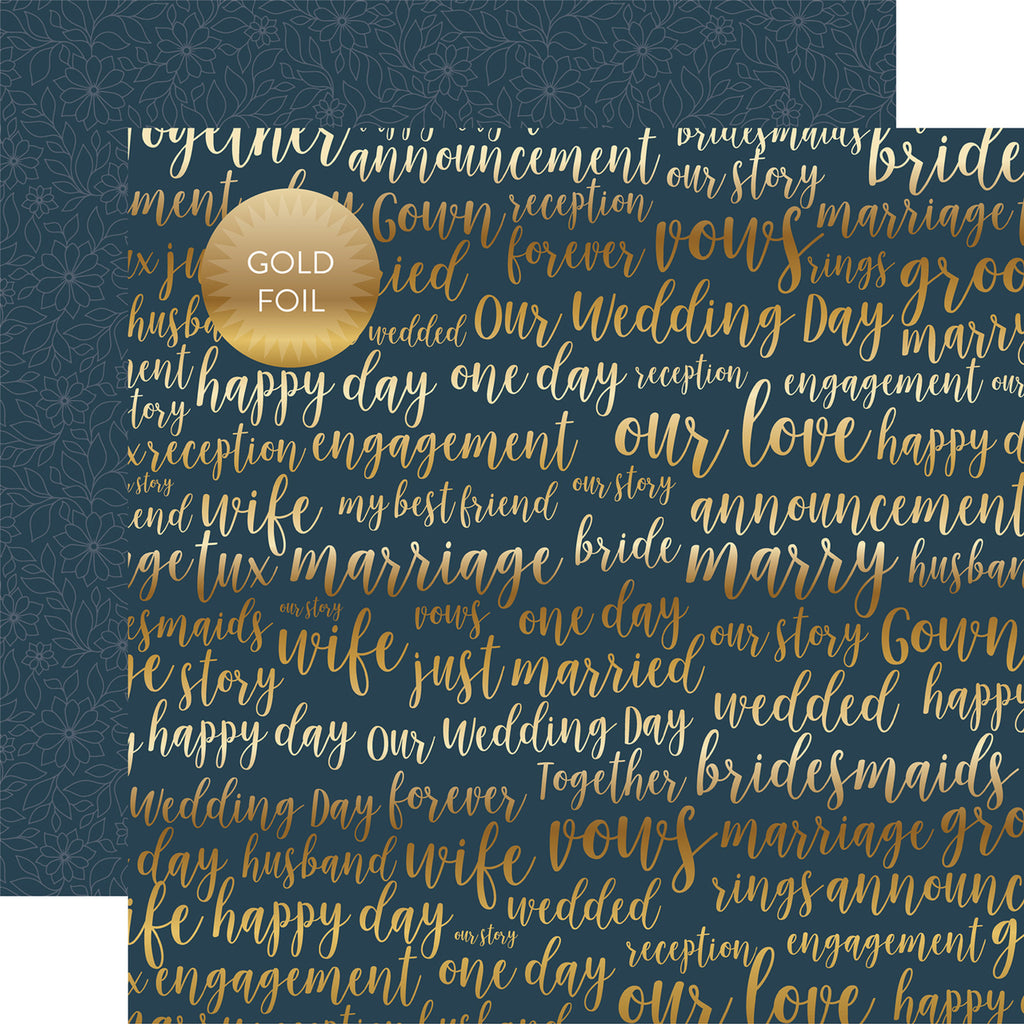 Together announcement bridesmaids bride
our story
Gown reception marriage
GOLD FOIL
forever vows rings
wedded Our Wedding Day marry
happy day one day reception engagement our
story
reception engagement our love happy
our story
wife my best friend our story announcement
tux marriage bride marry
our story vows one day our story Gown
wife just married
story wedded happy
happy day Our Wedding Day
Together bridesmaids
Wedding Day forever vows marriage
day husband wife rings
happy day wedded
our story reception engagement
engagement one day
our love happy